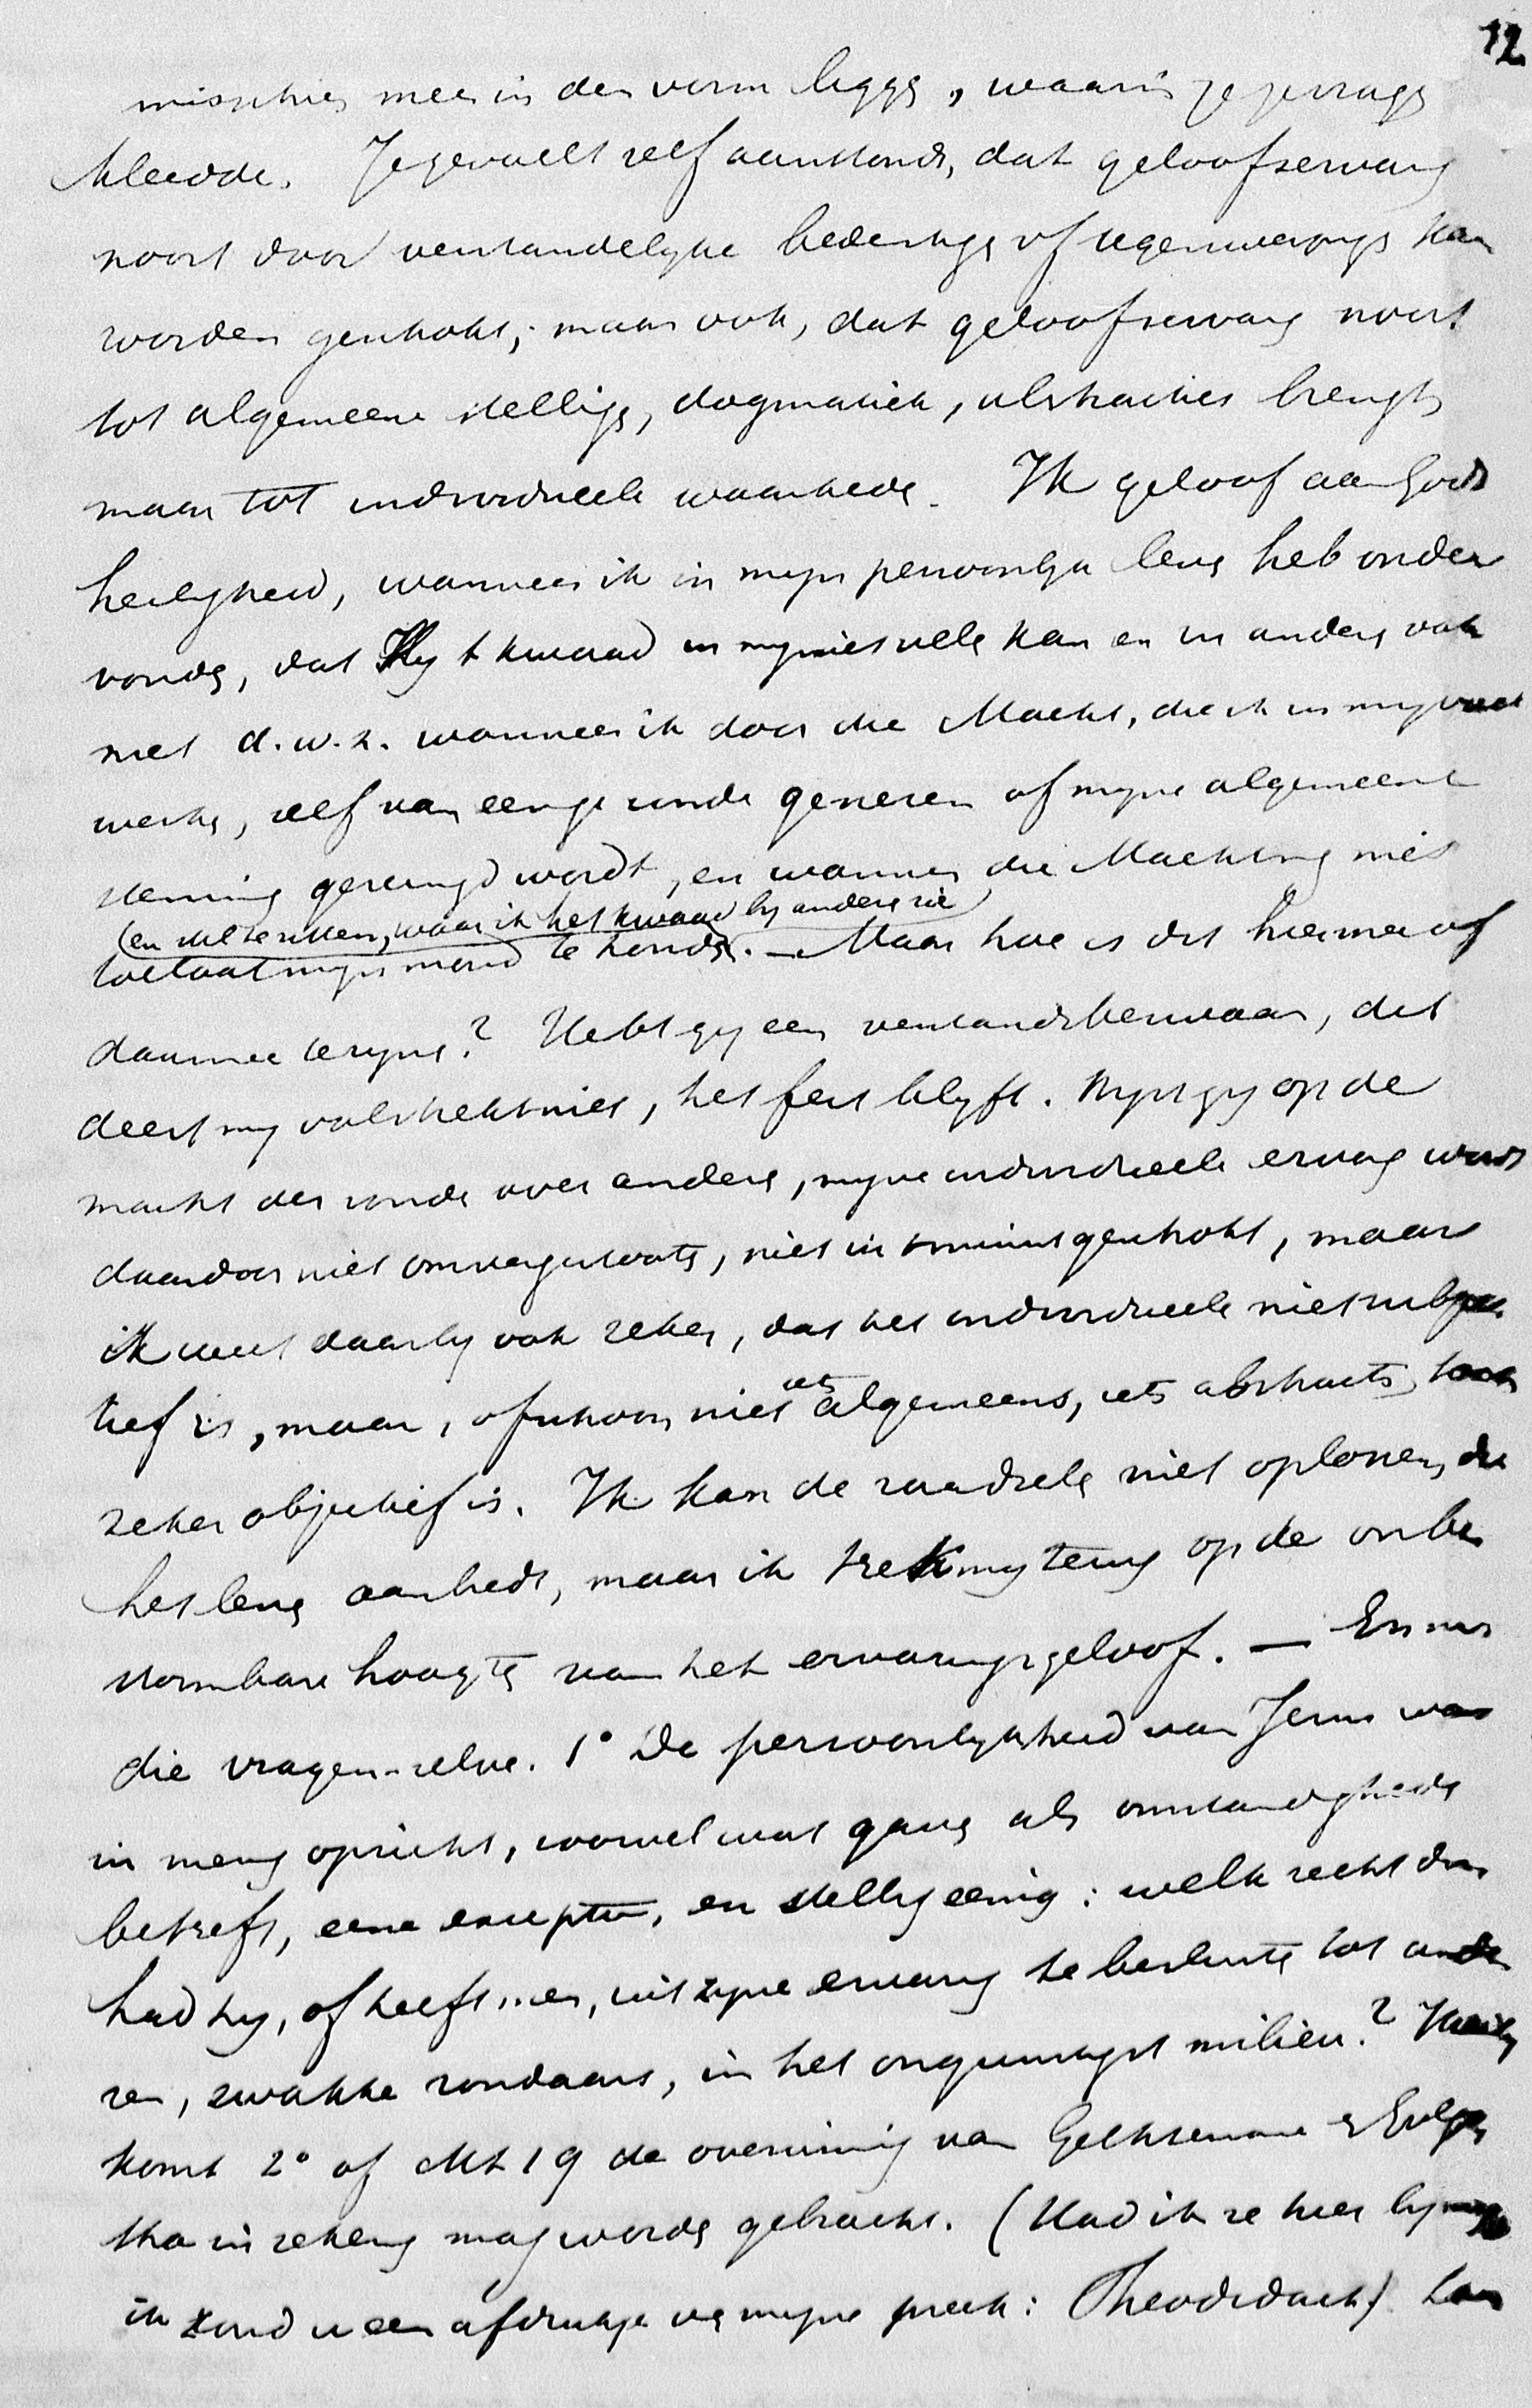 12
misschien meer in den vorm liggen, waarin ge je vragen
kleedde. Je gevoelt zelf aanstonds, dat geloofservaring
nooit door verstandelyke bedenkings of tegenwerpings kan
worden geschokt; maar ook, dat geloofservaring nooit
tot algemeene stellings, dogmatiek, abstracties brengt
maar tot individueele waarheden. Ik geloof aan Gods
heiligheid, wanneer ik in myn persoonlyk leven heb onder
vonden, dat Hy 't kwaad in my niet velen kan en in anderen ook
niet d.w.z. wanneer ik door die Macht, die ik in my voel
werken, zelf van eenige zonde genezen of myne algemeene
stemming gereinigd wordt, en wanneer die Macht my niet
(en stil te zitten, waar ik het kwaad by anderen zie)
toelaat myn mond te houden. — Maar hoe is dit hiermee of
daarmee te rymen? Hebt gy een verstandsbezwaar, dit
deert my volstrekt niet, het feit blyft. Wyst gy op de
macht der zonde over anderen, myne individueele ervaring wordt
daardoor niet omvergestooten, niet in 't minst geschokt, maar
ik weet daarby ook zeker, dat het individueele niet subjec
tief is, maar, ofschoon niet iets algemeens, iets abstracts, toch
zeker objectief is. Ik kan de raadsels niet oplossen, die
het leven aanbiedt, maar ik trek my terug op de onbe
stormbare hoogte van het ervaringsgeloof. — En nu
die vragen-zelve. 1° De persoonlykheid van Jezus was
in menig opzicht, zoowel wat gaven als omstandigheden
betreft, eene exceptie, en stellig eenig: welk recht dus
had hy, of heeft men, uit zyne ervaring te besluiten tot ande
ren, zwakke zondaars, in het ongunstigst milieu?
komt 2° of Mt 19 de overwinning van Gethsemane & Golgo
tha in rekening mag worden gebracht. (Had ik ze hier by my
ik zond u een afdrukje van myne preek: Theodidact)